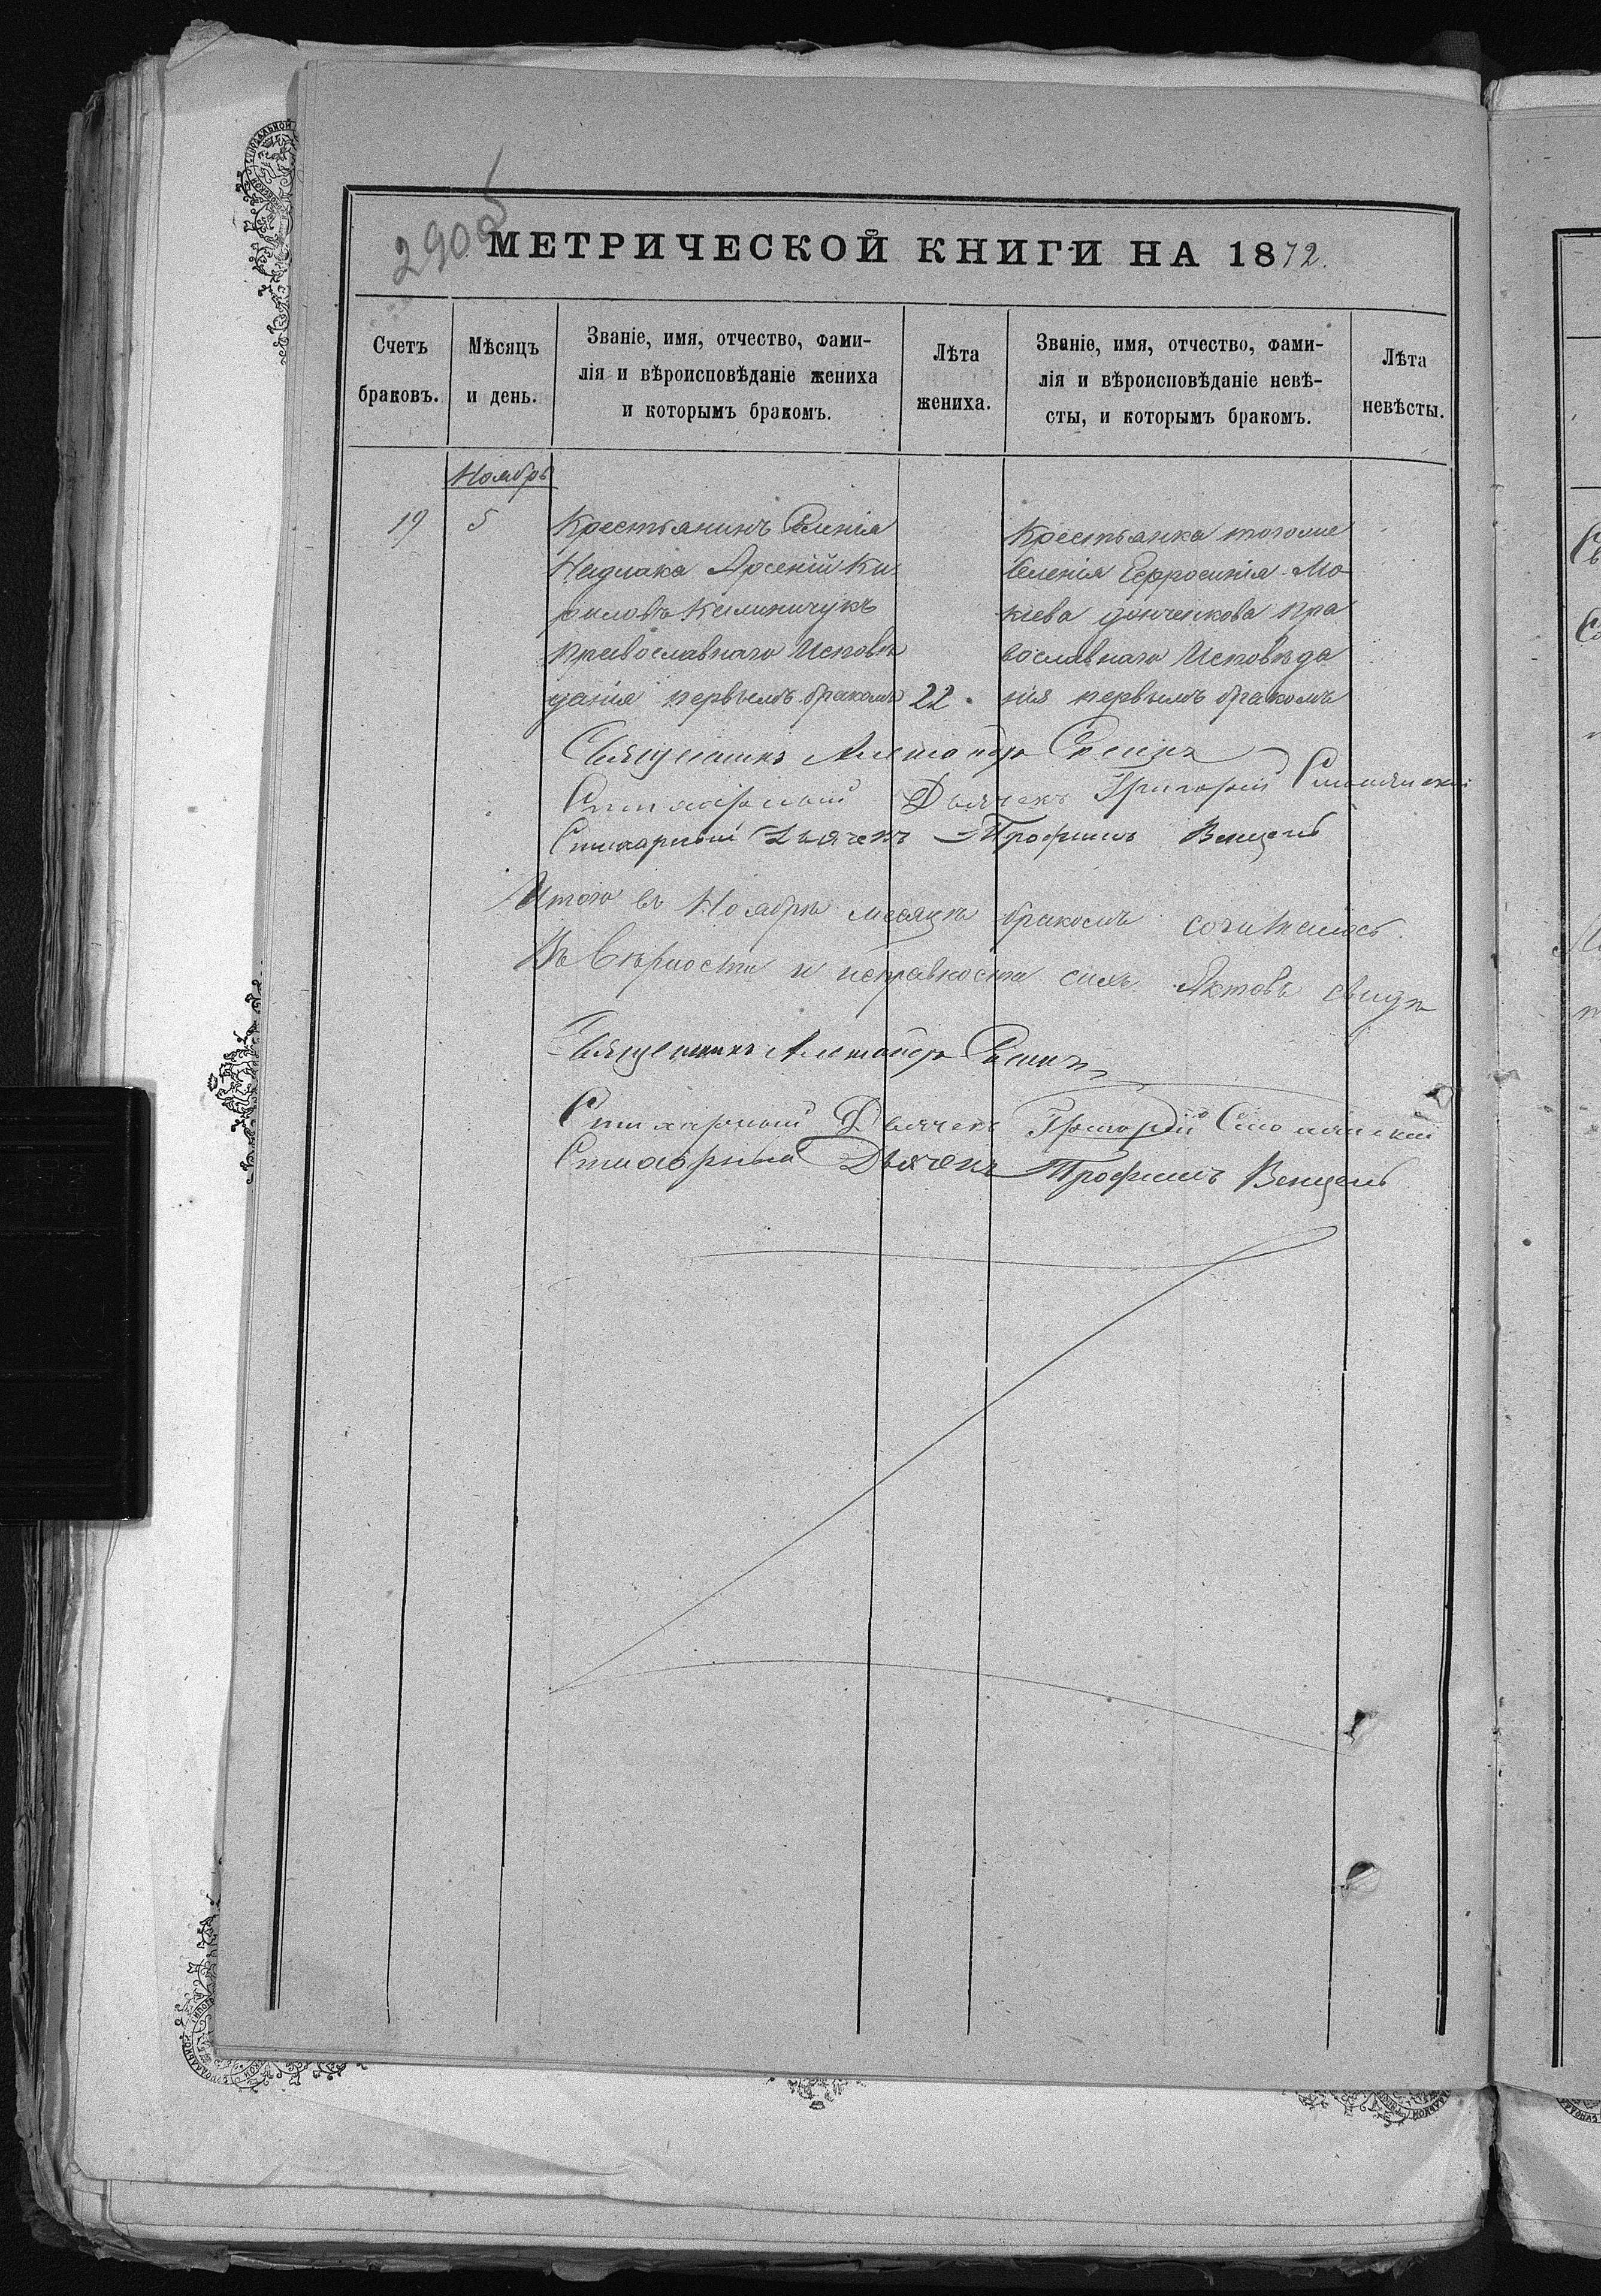 МЕТРИЧЕСКОЙ КНИГИ НА 1872.
Счетъ браковъ.
Мѣсяцъ и день.
Званіе, имя, отчество, фами-
лія и вѣроисповѣданіе жениха
и которымъ бракомъ.
Лѣта жениха.
Званіе, имя, отчество, фами-
лія и вѣроисповѣданіе невѣ-
сты, и которымъ бракомъ.
Лѣта невѣсты.
Ноябрь
19
5
Крестьянинъ Селенія
Арсеній Ки-
риловъ Калиничукъ
православнаго Исповѣ
данія первымъ бракомъ
22.
Крестьянка тогоже
Селенія Ефросинія Мо-
кіева донченкова пра
вославнаго Исповѣда
нія первымъ бракомъ
Священникъ
Стихарный Дьячекъ Григорій
Стихарный Дьячекъ Трофимъ Венцель
Итого въ Ноябрѣ месяцѣ бракомъ сочиталось.
Въ Вѣрности и исправности сихъ Актовъ свидѣ
Священникъ
Стихарный Дьячекъ Григорій
Стихарный Дьячекъ Трофимъ Венцель